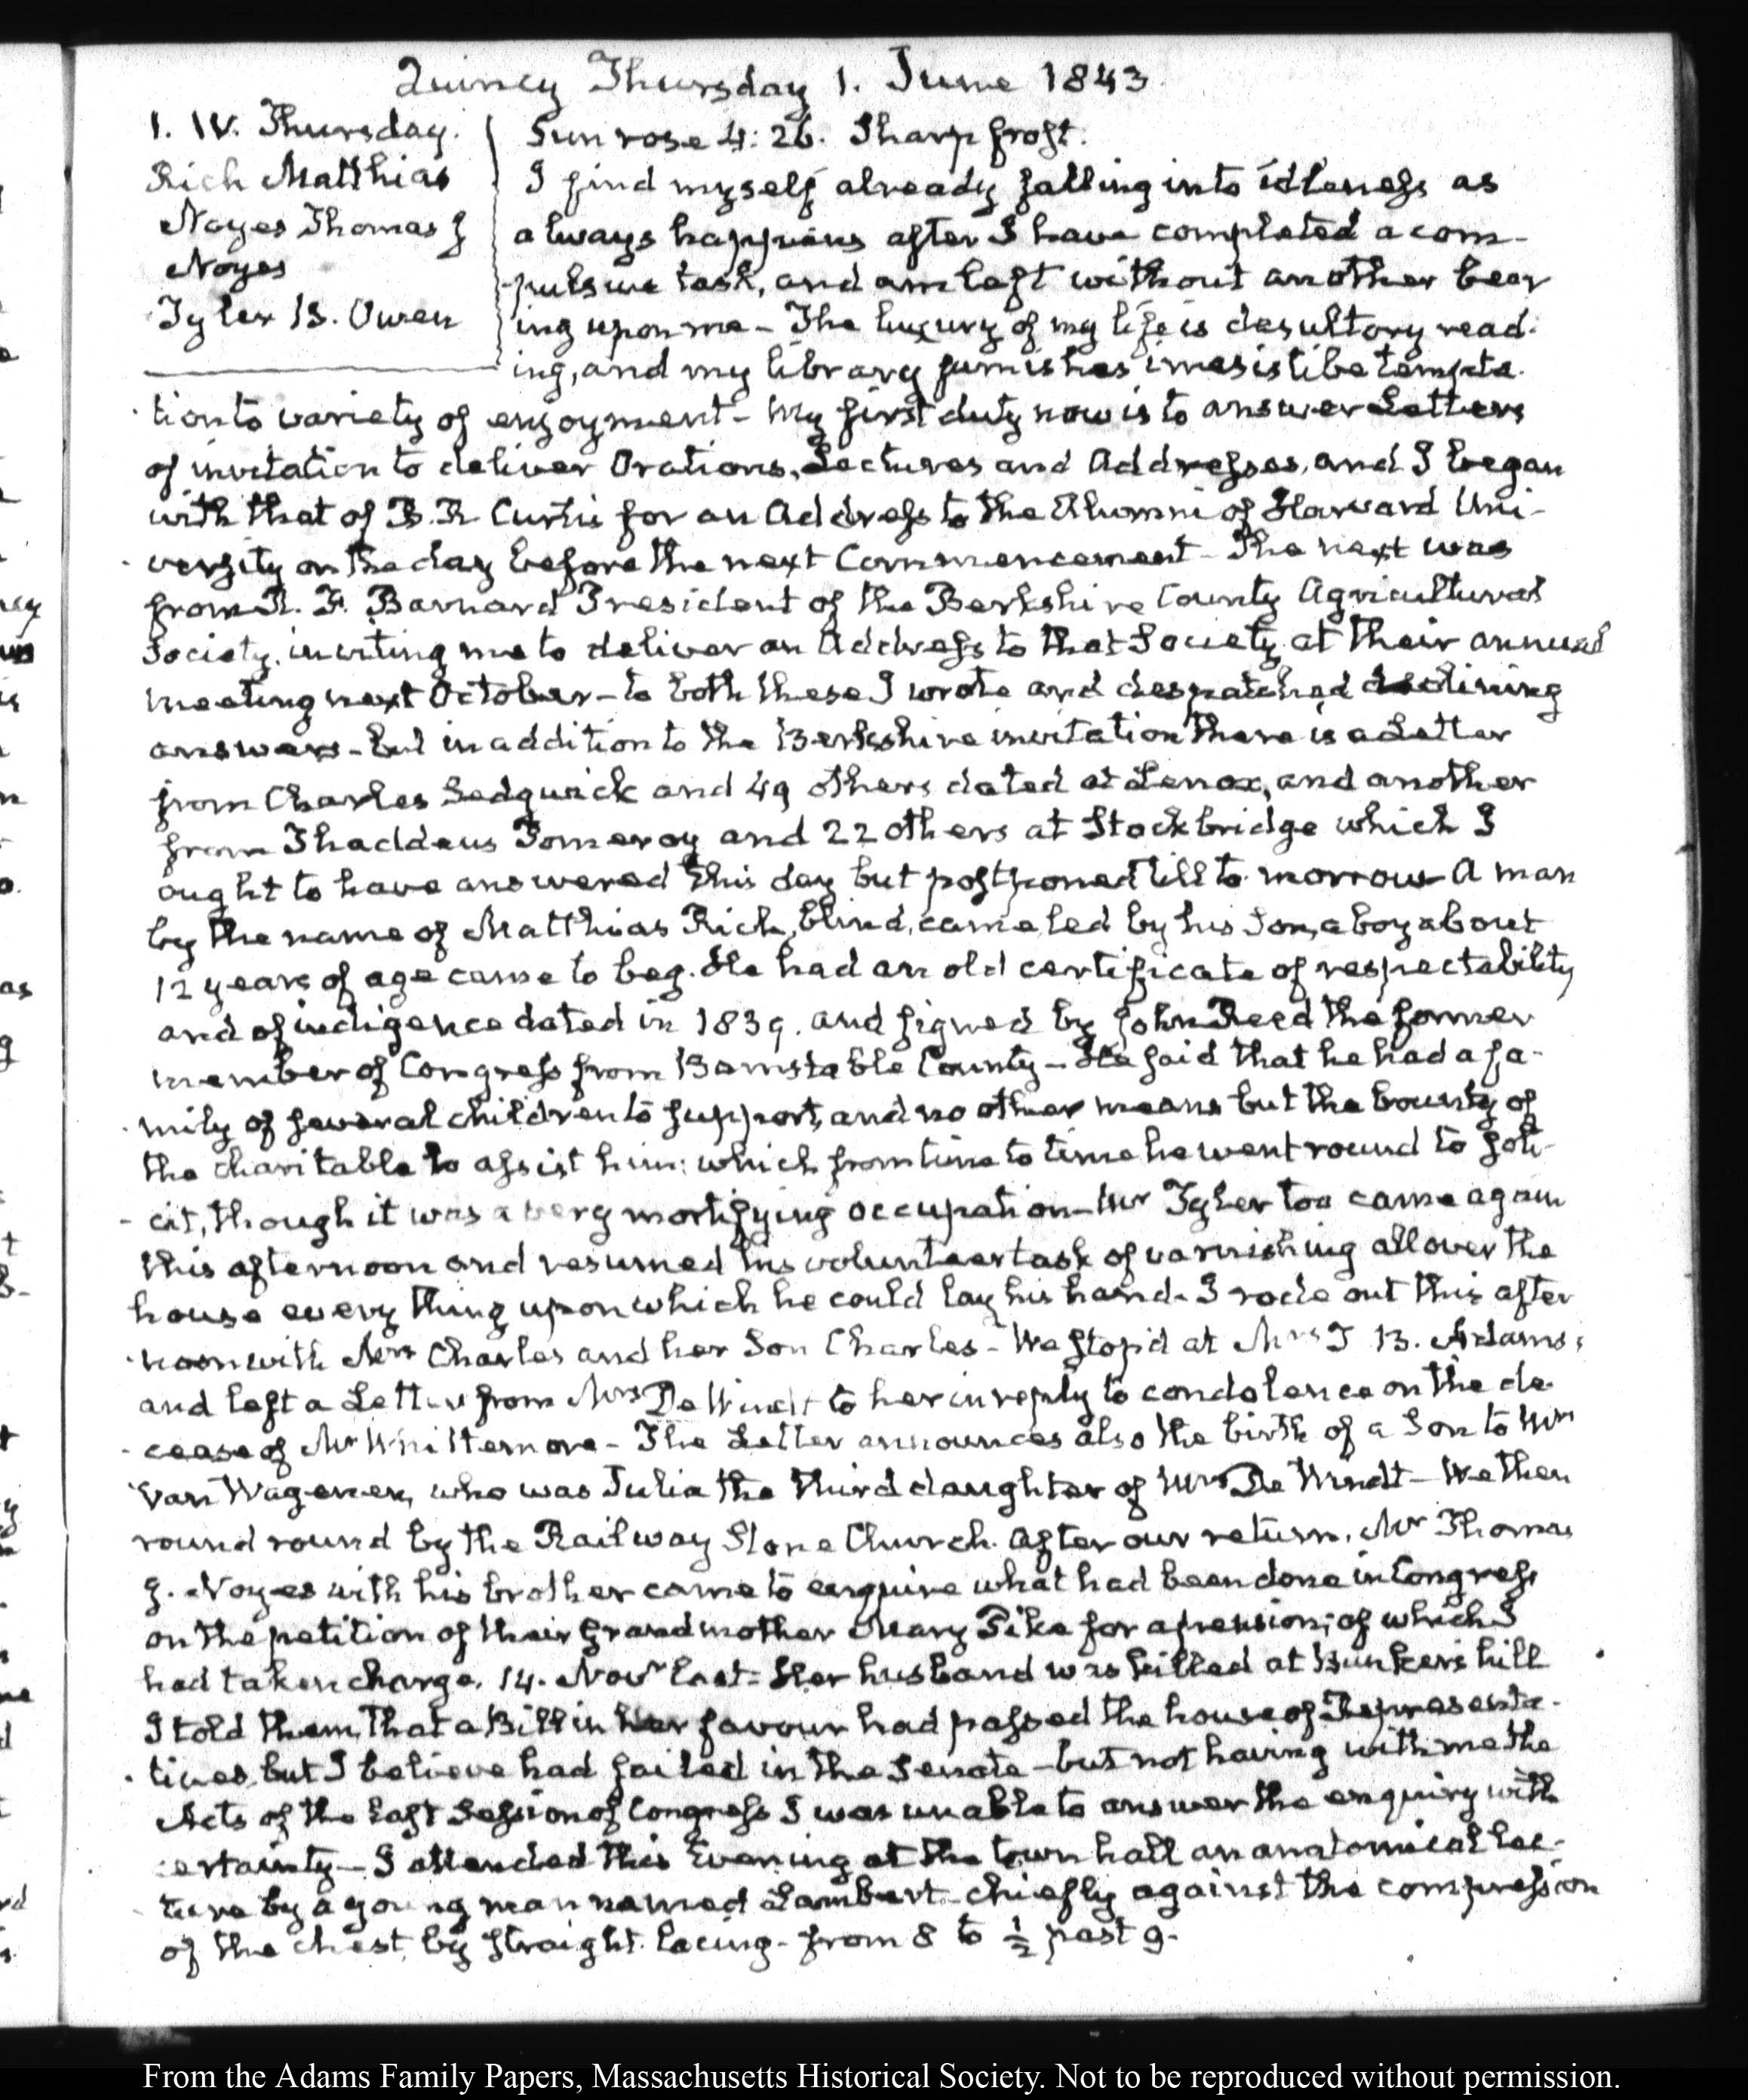 Quincy Thursday 1. June 1843.
1. IV. Thursday.
Rich Matthias
Noyes Thomas J
Noyes
Tyler B. Owen
Sun rose 4:26. Sharp frost.
I find myself already falling into idleness as
always happens after I have completed a com-
pulsive task, and am left without another bear
ing upon me – The luxury of my life is desultory read-
ing, and my library furnishes irresistible tempta-
tion to variety of enjoyment – My first duty now is to answer Letters
of invitation to deliver Orations, Lectures and Addresses, and I began
with that of B. R. Curtis for an Address to the Alumni of Harvard Uni-
versity on the day before the next Commencement – The next was
from R. F. Barnard President of the Berkshire County Agricultural
Society, inviting me to deliver an Address to that Society at their annual
meeting next October – to both these I wrote and despatched declining
answers – but in addition to the Berkshire invitation there is a Letter
from Charles Sedgwick and 49 others dated at Lenox, and another
from Thaddeus Pomeroy and 22 others at Stockbridge which I
ought to have answered this day but postponed till to-morrow – A man
by the name of Matthias Rich, blind, came led by his Son, a boy about
12 years of age came to beg. He had an old certificate of respectability
and of indigence dated in 1839. and signed by John Reed the former
member of Congress from Barnstable County – He said that he had a fa-
mily of several children to support, and no other means but the bounty of
the charitable to assist him; which from time to time he went round to soli-
cit, though it was a very mortifying occupation – Mr Tyler too came again
this afternoon and resumed his volunteer task of varnishing all over the
house every thing upon which he could lay his hand – I rode out this after
noon with Mrs Charles and her Son Charles – We stop'd at Mrs T. B. Adams's
and left a Letter from Mrs De Windt to her in reply to condolence on the de-
cease of Mr Whittemore – The Letter announces also the birth of a Son to Mrs
Van Wagenen, who was Julia the third daughter of Mrs De Windt – We then
round round by the Railway Stone Church. After our return, Mr Thomas
J. Noyes with his brother came to enquire what had been done in Congress
on the petition of their Grandmother Mary Pike for a pension; of which I
had taken charge. 14. Novr last – Her husband was killed at Bunker's hill
I told them that a Bill in her favour had passed the house of Representa-
tives, but I believe had failed in the Senate – but not having with me the
Acts of the last Session of Congress I was unable to answer the enquiry with
certainty – I attended this Evening at the town hall an anatomical lec-
ture by a young man named Lambert – chiefly against the compression
of the chest, by straight lacing – from 8 to ½ past 9 –
From the Adams Family Papers, Massachusetts Historical Society. Not to be reproduced without permission.